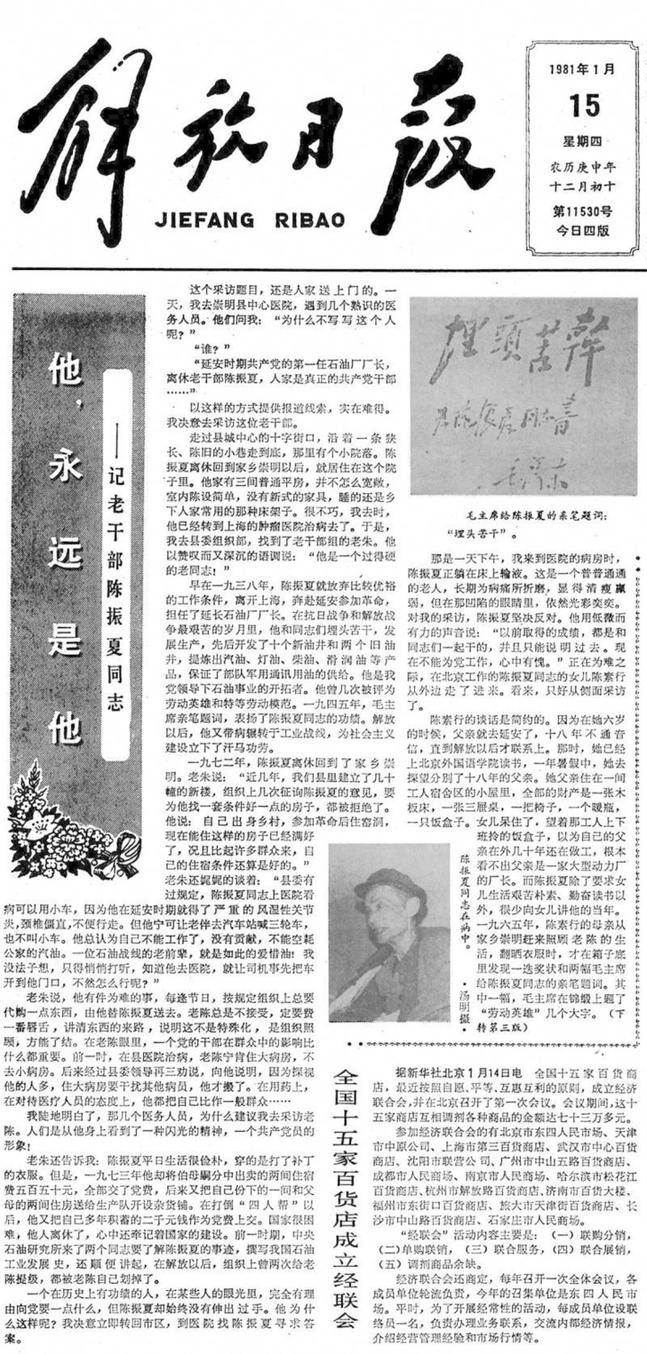 解放日报
JIEFANG RIBAO
1981年1月
15
星期四
农历庚申年
十二月初十
第11530号
今日四版
他永远是他
——记老干部陈振夏同志
这个采访题目，还是人家送上门的。一
天，我去崇明县中心医院，遇到几个熟识的医
务人员。他们问我：“为什么不写写这个人
呢？”
“谁？”
“延安时期共产党的第一任石油厂厂长，
离休老干部陈振夏，人家是真正的共产党干部
……”
以这样的方式提供报道线索，实在难得。
我决意去采访这位老干部。
走过县城中心的十字街口，沿着一条狭
长、陈旧的小巷走到底，那里有个小院落。陈
振夏离休回到家乡崇明以后，就居住在这个院
子里。他家有三间普通平房，并不怎么宽敞，
室内陈设简单，没有新式的家具，睡的还是乡
下人家常用的那种床架子。很不巧，我去时，
他已经转到上海的肿瘤医院治病去了。于是，
我去县委组织部，找到了老干部组的老朱。他
以赞叹而又深沉的语调说：“他是一个过得硬
的老同志！”
早在一九三八年，陈振夏就放弃比较优裕
的工作条件，离开上海，奔赴延安参加革命，
担任了延长石油厂厂长。在抗日战争和解放战
争最艰苦的岁月里，他和同志们埋头苦干，发
展生产，先后开发了十个新油井和两个旧油
井，提炼出汽油、灯油、柴油、滑润油等产
品，保证了部队军用通讯用油的供给。他是我
党领导下石油事业的开拓者。他曾几次被评为
劳动英雄和特等劳动模范。一九四五年，毛主
席亲笔题词，表扬了陈振夏同志的功绩。解放
以后，他又带病辗转于工业战线，为社会主义
建设立下了汗马功劳。
一九七二年，陈振夏离休回到了家乡崇
明。老朱说：“近几年，我们县里建立了几十
幢的新楼，组织上几次征询陈振夏的意见，要
为他找一套条件好一点的房子，都被拒绝了。
他说：自己出身乡村，参加革命后住窑洞，
现在能住这样的房子已经满好
了，况且比起许多群众来，自
己的住宿条件还算是好的。”
老朱还娓娓的谈着：“县委有
过规定，陈振夏同志上医院看
病可以用小车，因为他在延安时期就得了严重的风湿性关节
炎，颈椎僵直，不便行走。但他宁可让老伴去汽车站喊三轮车，
也不叫小车。他总认为自己不能工作了，没有贡献，不能空耗
公家的汽油。一位石油战线的老前辈，就是如此的爱惜油！我
没法子想，只得悄悄打听，知道他去医院，就让司机事先把车
开到他门口，不然怎么行呢？”
老朱说，他有件为难的事，每逢节日，按规定组织上总要
代购一点东西，由他替陈振夏送去。老陈总是不接受，定要费
一番唇舌，讲清东西的来路，说明这不是特殊化，是组织照
顾，方能了结。在老陈眼里，一个党的干部在群众中的影响比
什么都重要。前一时，在县医院治病，老陈宁肯住大病房，不
去小病房。后来经过县委领导再三劝说，向他说明，因为探视
他的人多，住大病房要干扰其他病员，他才搬了。在用药上，
在对待医疗人员的态度上，他都把自己比作一般群众……
我陡地明白了，那几个医务人员，为什么建议我去采访老
陈。人们是从他身上看到了一种闪光的精神，一个共产党员的
形象！
老朱还告诉我：陈振夏平日生活很俭朴，穿的是打了补丁
的衣服。但是，一九七三年他却将伯母剐分中出卖的两间住宿
费五百五十元，全部交了党费，后来又把自己份下的一间和父
母的两间住房送给生产队开设杂货铺。在打倒“四人帮”以
后，他又把自己多年积蓄的二千元钱作为党费上交。国家很困
难，他人离休了，心中还牵记着国家的建设。前一时期，中央
石油研究所来了两个同志要了解陈振夏的事迹，撰写我国石油
工业发展史，还顺便讲起，在解放以后，组织上曾两次给老
陈提级，都被老陈自己划掉了。
一个在历史上有功绩的人，在某些人的眼光里，完全有理
由向党要一点什么，但陈振夏却始终没有伸出过手。他为什
么这样呢？我决意立即转回市区，到医院找陈振夏寻求答
案。
埋頭苦幹
毛主席给陈振夏的亲笔题词：
“埋头苦干”。
那是一天下午，我来到医院的病房时，
陈振夏正躺在床上输液。这是一个普普通通
的老人，长期为病痛所折磨，显得清瘦羸
弱，但在那凹陷的眼睛里，依然光彩奕奕。
对我的采访，陈振夏坚决反对。他用低微而
有力的声音说：“以前取得的成绩，都是和
同志们一起干的，并且只能说明过去。现
在不能为党工作，心中有愧。”正在为难之
际，在北京工作的陈振夏同志的女儿陈素行
从外边走了进来。看来，只好从侧面采访
了。
陈素行的谈话是简约的。因为在她六岁
的时候，父亲就去延安了，十八年不通音
信，直到解放以后才联系上。那时，她已经
上北京外国语学院读书，一年暑假中，她去
探望分别了十八年的父亲。她父亲住在一间
工人宿舍区的小屋里，全部的财产是一张木
板床，一张三屉桌，一把椅子，一个暖瓶，
一只饭盒子。女儿呆住了，望着那工人上下
班拎的饭盒子，以为自己的父
亲在外几十年还在做工，根本
看不出父亲是一家大型动力厂
的厂长。而陈振夏除了要求女
儿生活艰苦朴素、勤奋读书以
外，很少向女儿讲他的当年。
一九六五年，陈素行的母亲从
家乡崇明赶来照顾老陈的生
活，翻晒衣服时，才在箱子底
里发现一迭奖状和两幅毛主席
给陈振夏同志的亲笔题词。其
中一幅，毛主席在锦缎上题了
“劳动英雄”几个大字。（下
转第三版）
陈振夏同志在病中。
汤明摄
全国十五家百货店成立经联会
据新华社北京1月14日电 全国十五家百货商
店，最近按照自愿、平等、互惠互利的原则，成立经济
联合会，并在北京召开了第一次会议。会议期间，这十
五家商店互相调剂各种商品的金额达七十三万多元。
参加经济联合会的有北京市东四人民市场、天津
市中原公司、上海市第三百货商店、武汉市中心百货
商店、沈阳市联营公司、广州市中山五路百货商店、
成都市人民商场、南京市人民商场、哈尔滨市松花江
百货商店、杭州市解放路百货商店、济南市百货大楼、
福州市东街口百货商店、旅大市天津街百货商店、长
沙市中山路百货商店、石家庄市人民商场。
“经联会”活动内容主要是：（一）联购分销，
（二）单购联销，（三）联合服务，（四）联合展销，
（五）调剂商品余缺。
经济联合会还商定，每年召开一次全体会议，各
成员单位轮流负责，今年的召集单位是东四人民市
场。平时，为了开展经常性的活动，每成员单位设联
络员一名，负责办理业务联系，交流内部经济情报，
介绍经营管理经验和市场行情等。